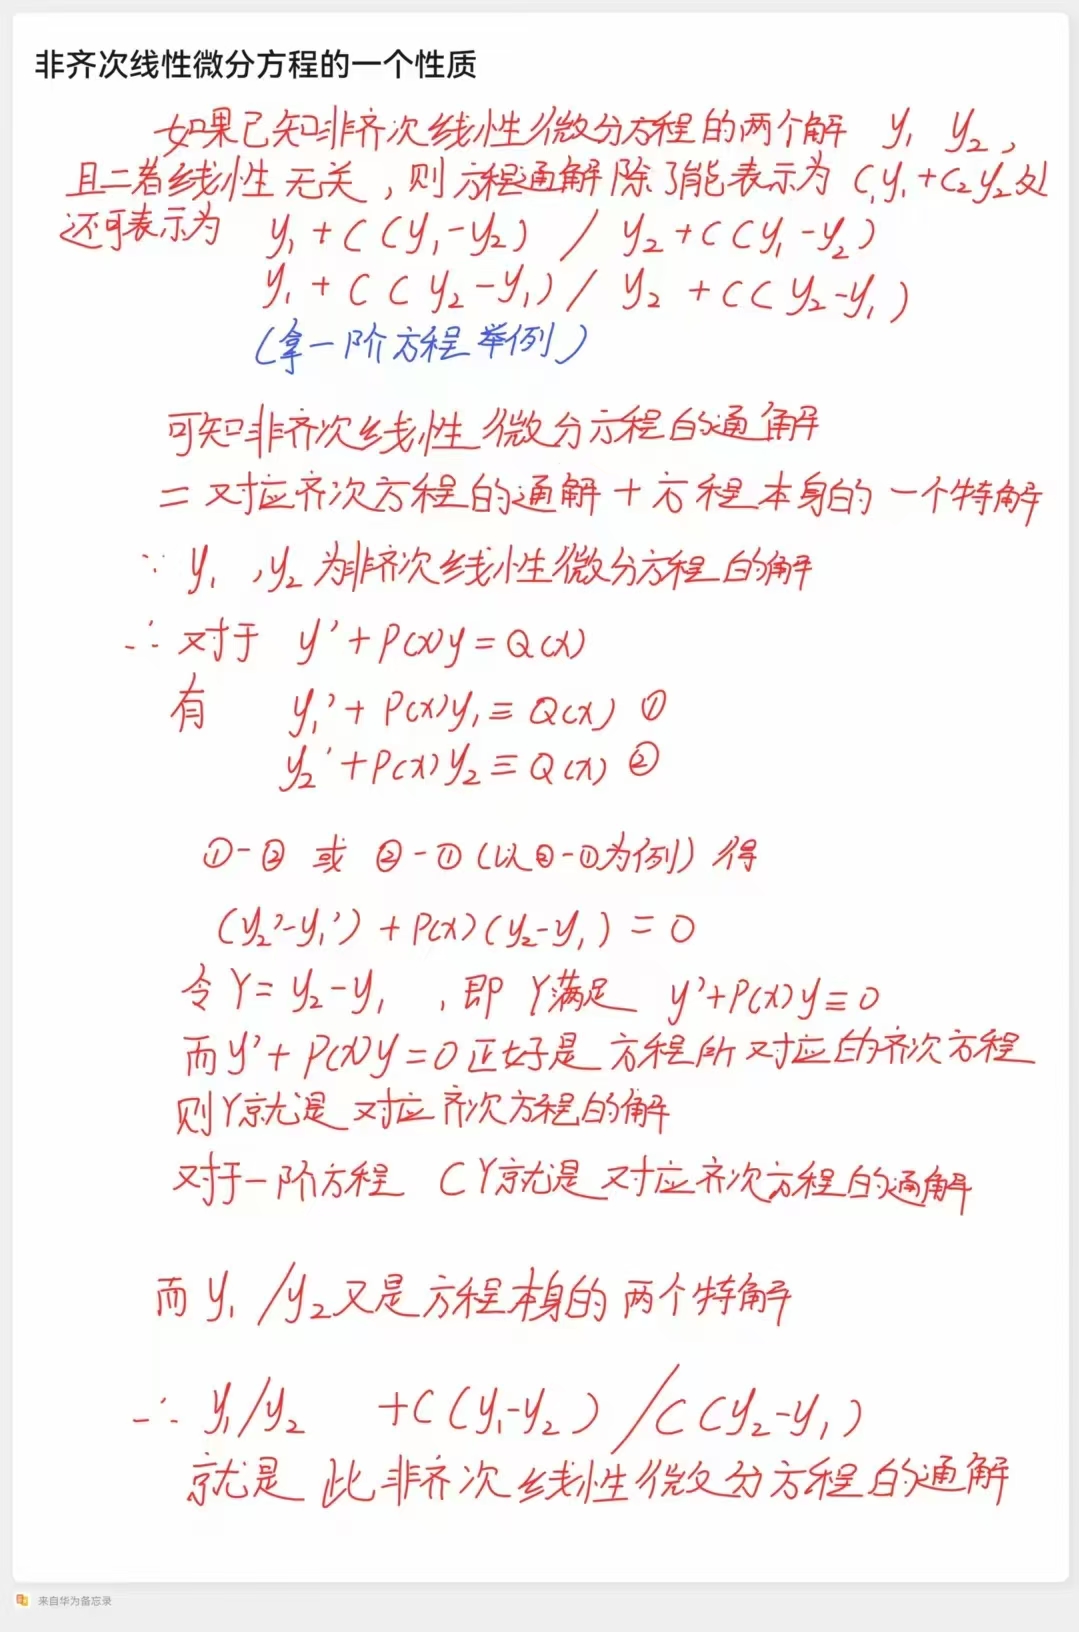 非齐次线性微分方程的一个性质
如果已知非齐次线性微分方程的两个解 y₁ y₂,
且二者线性无关,则方程通解除了能表示为 C₁y₁+C₂y₂处
还可表示为 y₁+C(y₁-y₂) / y₂+C(y₁-y₂)
y₁+C(y₂-y₁) / y₂+C(y₂-y₁)
(拿一阶方程举例)
可知非齐次线性微分方程的通解
=对应齐次方程的通解+方程本身的一个特解
∵ y₁,y₂为非齐次线性微分方程的解
∴ 对于 y'+P(x)y=Q(x)
有 y₁'+P(x)y₁≡Q(x) ①
y₂'+P(x)y₂≡Q(x) ②
①-② 或 ②-①(以②-①为例)得
(y₂'-y₁')+P(x)(y₂-y₁)=0
令Y=y₂-y₁,即Y满足 y'+P(x)y≡0
而y'+P(x)y=0正好是方程所对应的齐次方程
则Y就是对应齐次方程的解
对于一阶方程 CY就是对应齐次方程的通解
而y₁/y₂又是方程本身的两个特解
∴ y₁/y₂ +C(y₁-y₂)/C(y₂-y₁)
就是此非齐次线性微分方程的通解
来自华为备忘录